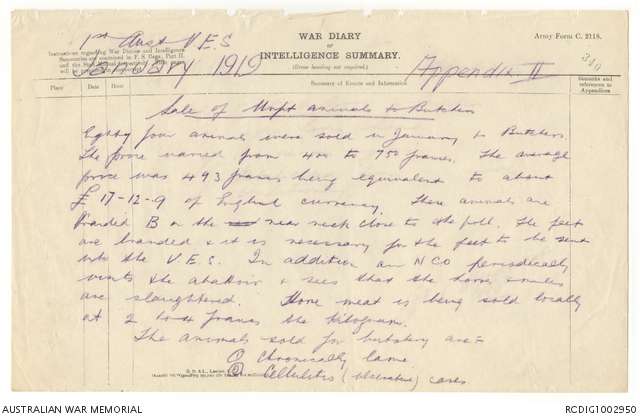 1st Aust V.E.S
WAR DIARY
or
INTELLIGENCE SUMMARY.
(Erase heading not required.)
Army Form C. 2118.
Instructions regarding War Diaries and Intelligence
Summaries are contained in F. S. Regs., Part II.
and the Staff Manual respectively. Title pages
will be prepared in manuscript.
January 1919
Appendix II
Place
Date
Hour
Summary of Events and Information
Remarks and
references to
Appendices
Sale of Unfit animals to Butchers
Eighty four animals were sold in January to Butchers.
The price varied from 400 to 750 francs. The average
price was 493 francs being equivalent to about
£ 17-12-9 of English currency. These animals are
branded B on the near neck close to the poll. The feet
are branded & it is necessary for the feet to be sent
into the V.E.S. In addition an NCO periodically
visits the abattoir & sees that the horses, mules
are slaughtered. Horse meat is being sold locally
at 2 to 4 francs the kilogram.
The animals sold for butchery are:-
(1) Chronically lame
(2) Cellulitis (ulcerative) cases
AUSTRALIAN WAR MEMORIAL
RCDIG1002950